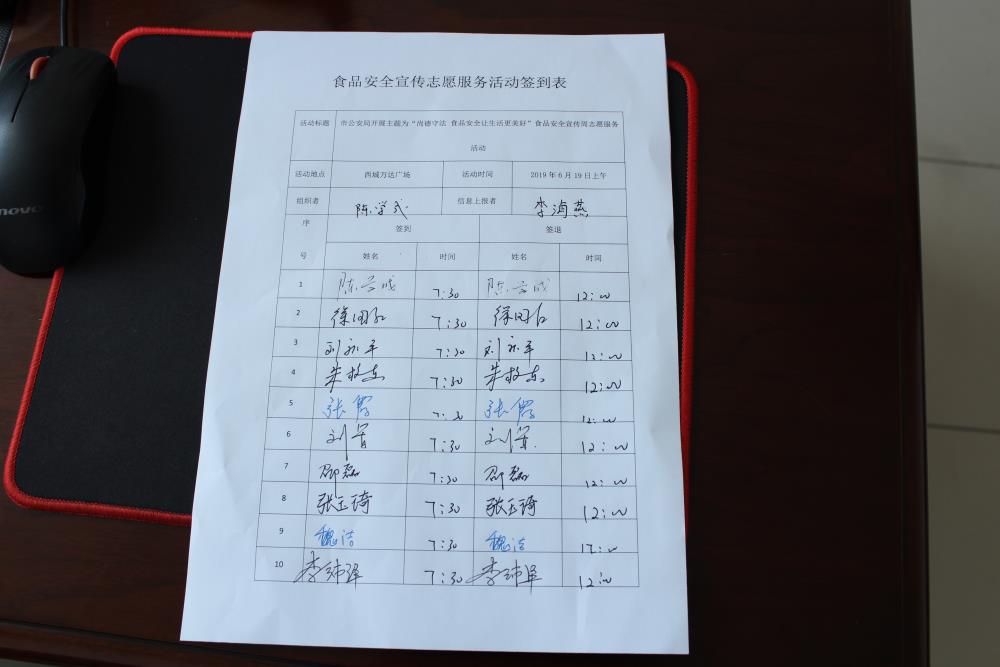 食品安全宣传志愿服务活动签到表
活动标题 市公安局开展主题为“尚德守法 食品安全让生活更美好”食品安全宣传周志愿服务
活动
活动地点 西城万达广场 活动时间 2019年6月19日上午
组织者 陈学武 信息上报者 李海燕
序 签到 签退
号 姓名 时间 姓名 时间
1 陈 7:30 陈 12:00
2 徐 7:30 徐 12:00
3 刘永军 7:30 刘永军 12:00
4 朱 7:30 朱 12:00
5 张霞 7:30 张霞 12:00
6 刘军 7:30 刘军 12:00
7 邵磊 7:30 邵磊 12:00
8 张玉琦 7:30 张玉琦 12:00
9 魏洁 7:30 魏洁 12:00
10 李 7:30 李 12:00
novo